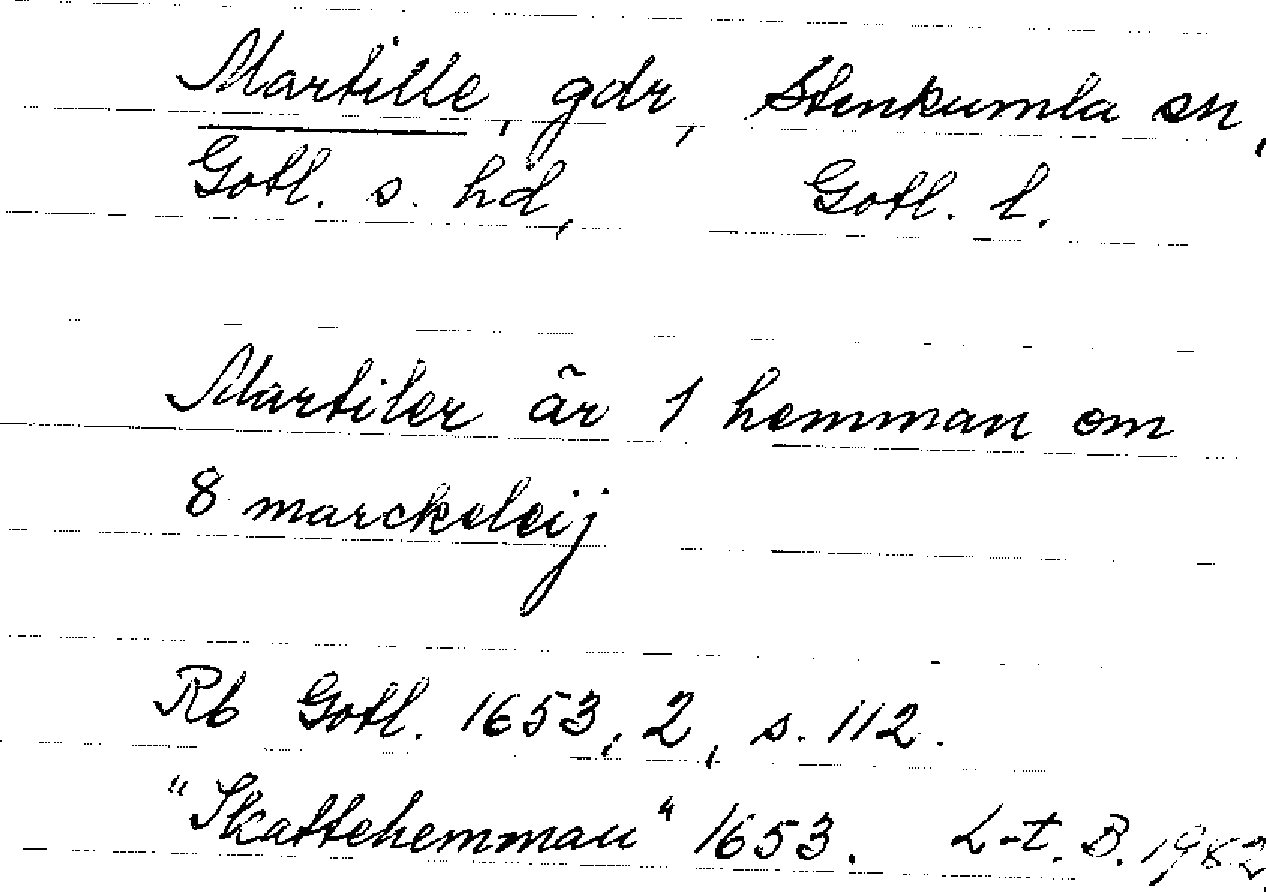 Martille, gdr, Stenkumla sn,
Gotl. s. hd, Gotl. l.
Martiler är 1 hemman om
8 marckeleij
Rb Gotl. 1653, 2, s. 112.
"Skattehemman" 1653. L-t. B. 1982.